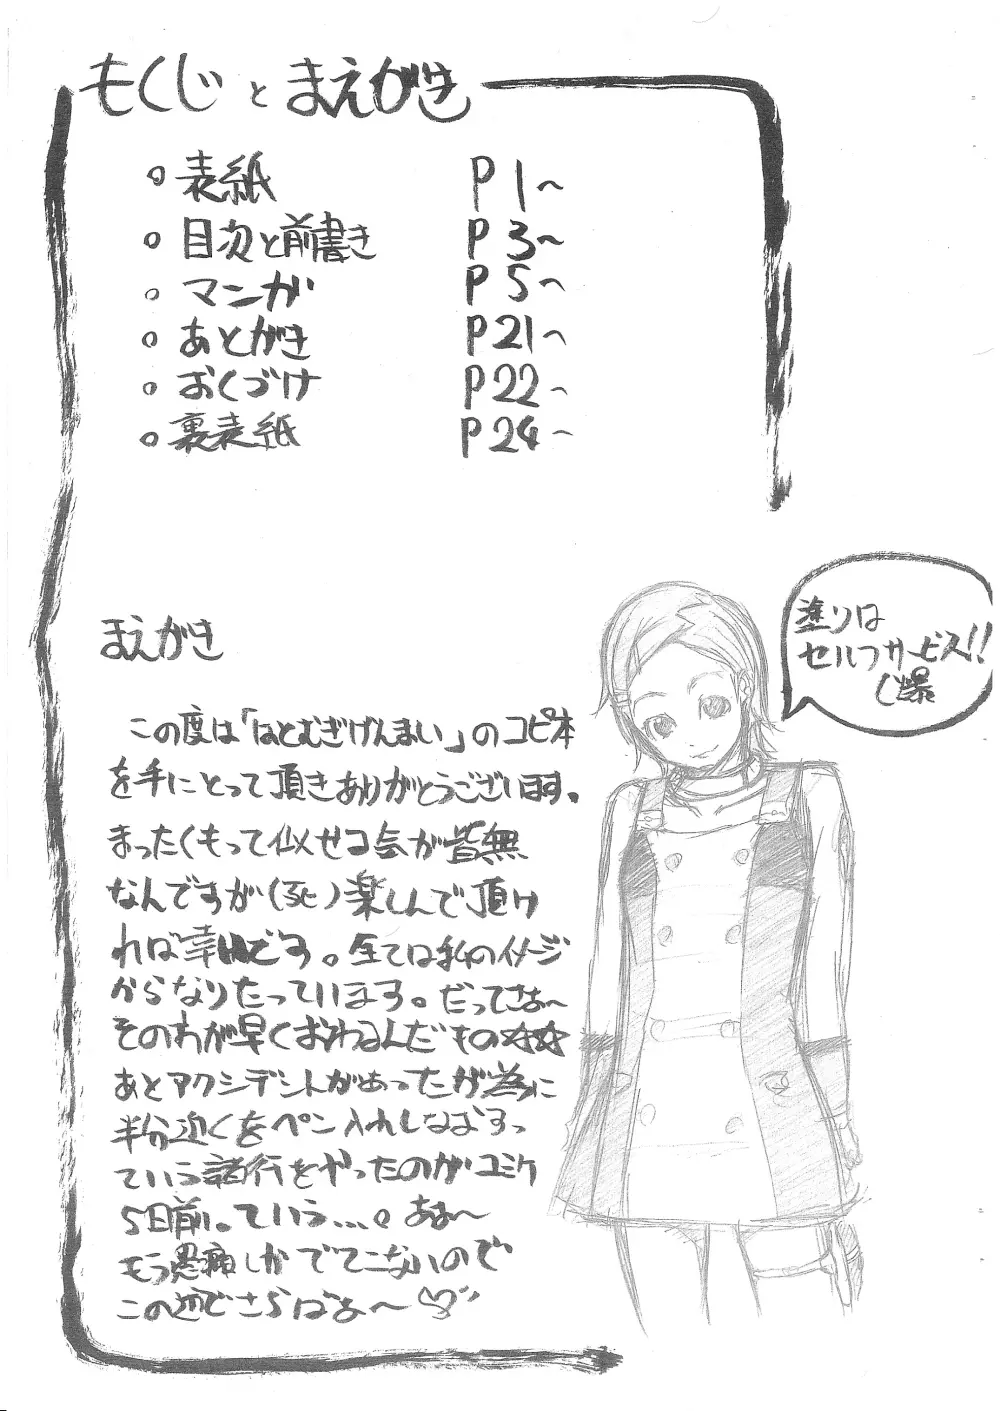 もくじ と まえがき
○ 表紙 P1〜
○ 目次と前書き P3〜
○ マンガ P5〜
○ あとがき P21〜
○ おくづけ P22〜
○ 裏表紙 P24〜
塗りは
セルフサービス!!
(爆
まえがき
この度は「はとむぎげんまい」のコピ本
を手にとって頂きありがとうございます。
まったくもって似せ 気が皆無
なんですが(死)楽しんで頂け
れば幸いです。全ては私のイメージ
からなりたっています。だってさぁ〜
そのわが早くおわるんだもの☆☆
あとアクシデントがあったが為に
半分近くをペン入れしなおすっ
ていう諸行をやったのがコミケ
5日前。ていう...。あぁ〜
もう愚痴しかでてこないので
この辺でさらばぁ〜